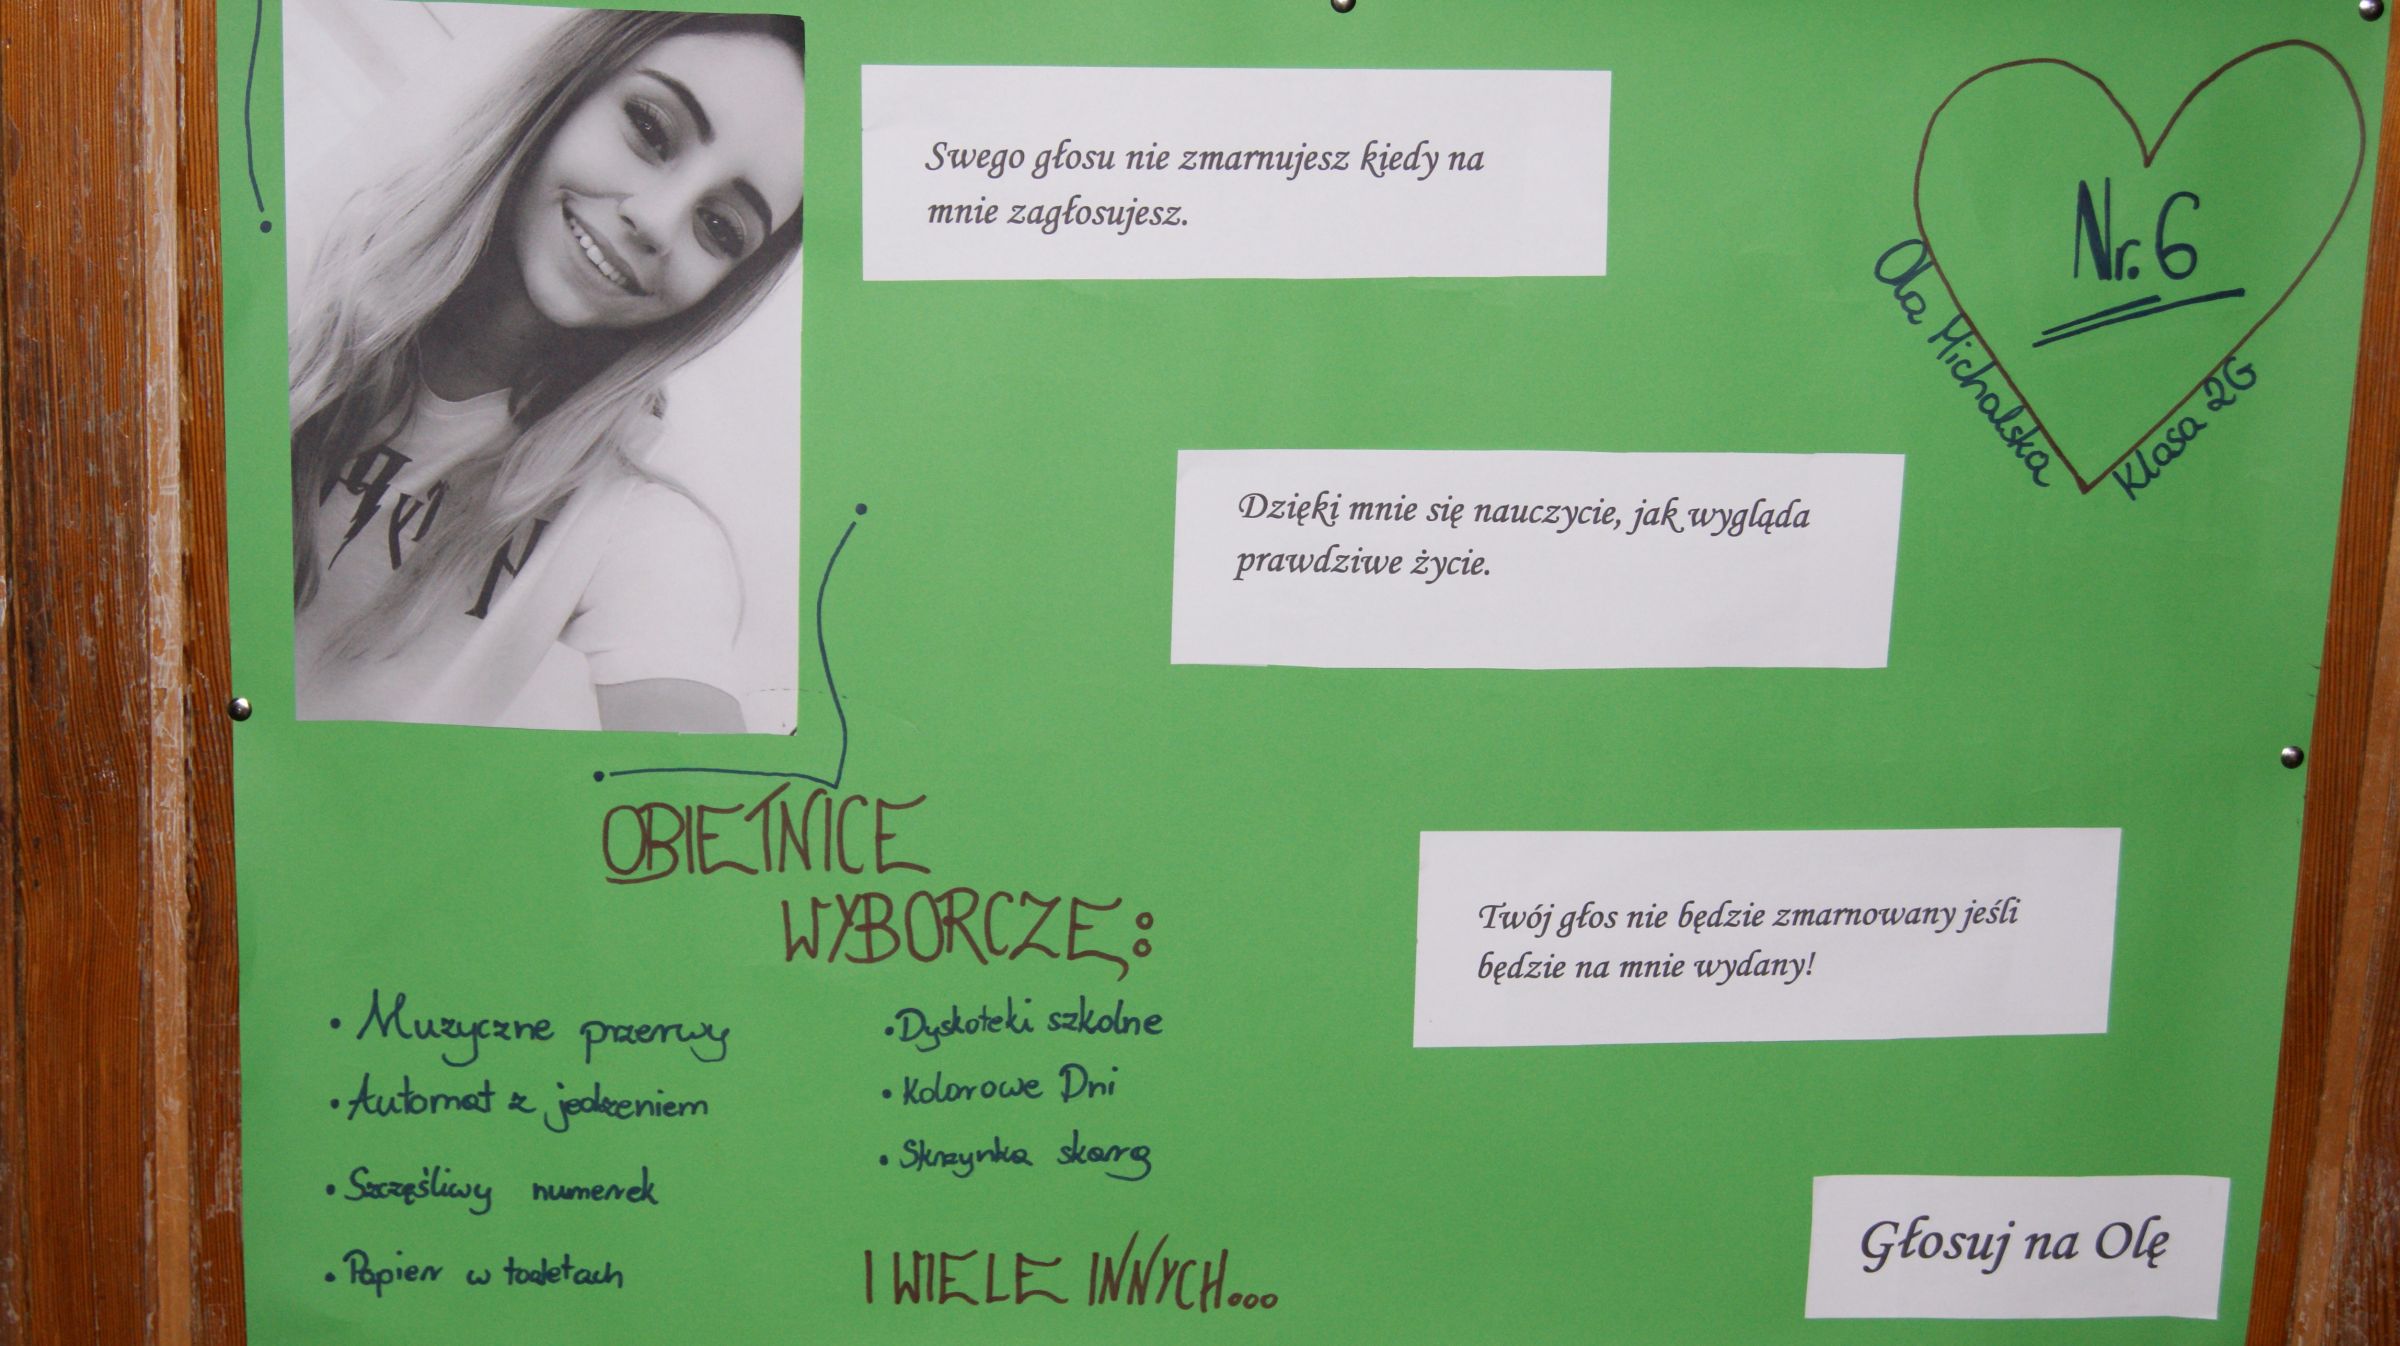 Swego głosu nie zmarnujesz kiedy na
mnie zagłosujesz.
Nr. 6
Ola Michalska
Klasa 2G
Dzięki mnie się nauczycie, jak wygląda
prawdziwe życie.
Twój głos nie będzie zmarnowany jeśli
będzie na mnie wydany!
OBIETNICE
WYBORCZE:
• Muzyczne przerwy
• Automat z jedzeniem
• Szczęśliwy numerek
• Papier w toaletach
• Dyskoteki szkolne
• Kolorowe Dni
• Skrzynka skarg
I WIELE INNYCH...
Głosuj na Olę